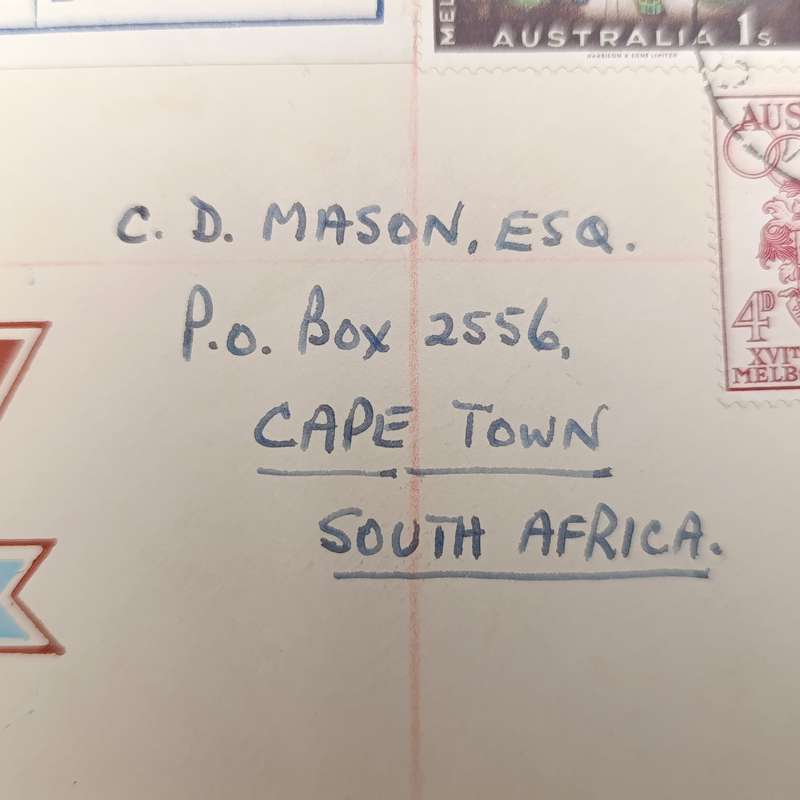 MEL
AUSTRALIA 1s.
HARRISON & SONS LIMITED
AUS
4D
XVITH
MELB
C. D. MASON, ESQ.
P.O. Box 2556,
CAPE TOWN
SOUTH AFRICA.